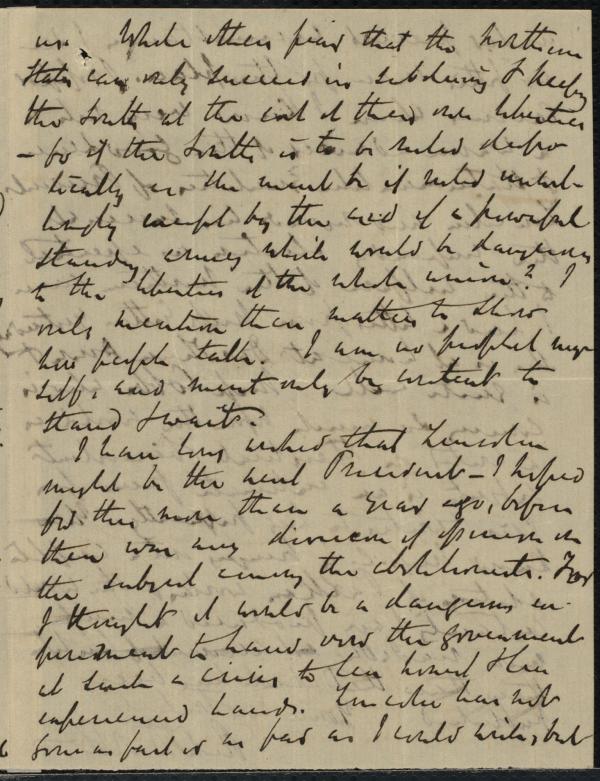 us. While others fear that the Northern
States can only succeed in subduing & keeping
the South at the cost of their own liberties
– for if the South is to be ruled despo
tically as the must be if ruled unwil-
lingly except by the aid of a powerful
standing army which would be dangerous
to the liberties of the whole union? I
only mention these matters to show
how people talk. I am no prophet my-
self, and must only be content to
stand & wait.
I have long wished that Lincoln
might be the next President – I hoped
for this more than a year ago, before
there was any division of opinion on
the subject among the abolitionists. For
I thought it would be a dangerous ex-
periment to hand over the government
at such a crisis to less honest & less
experienced hands. Lincoln has not
gone as fast or as far as I could wish, but